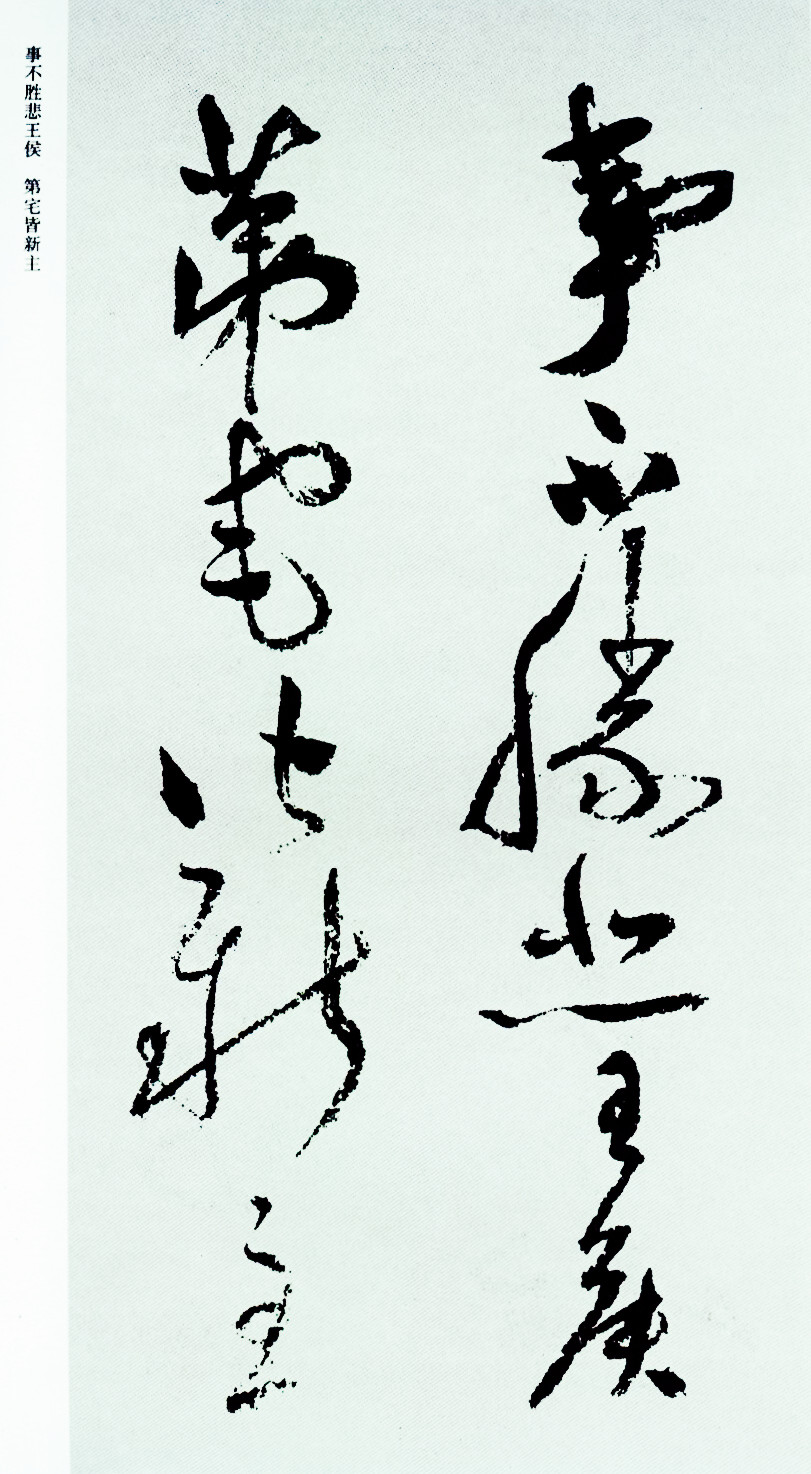 事不勝悲王侯
第宅皆新主
事不胜悲王侯 第宅皆新主